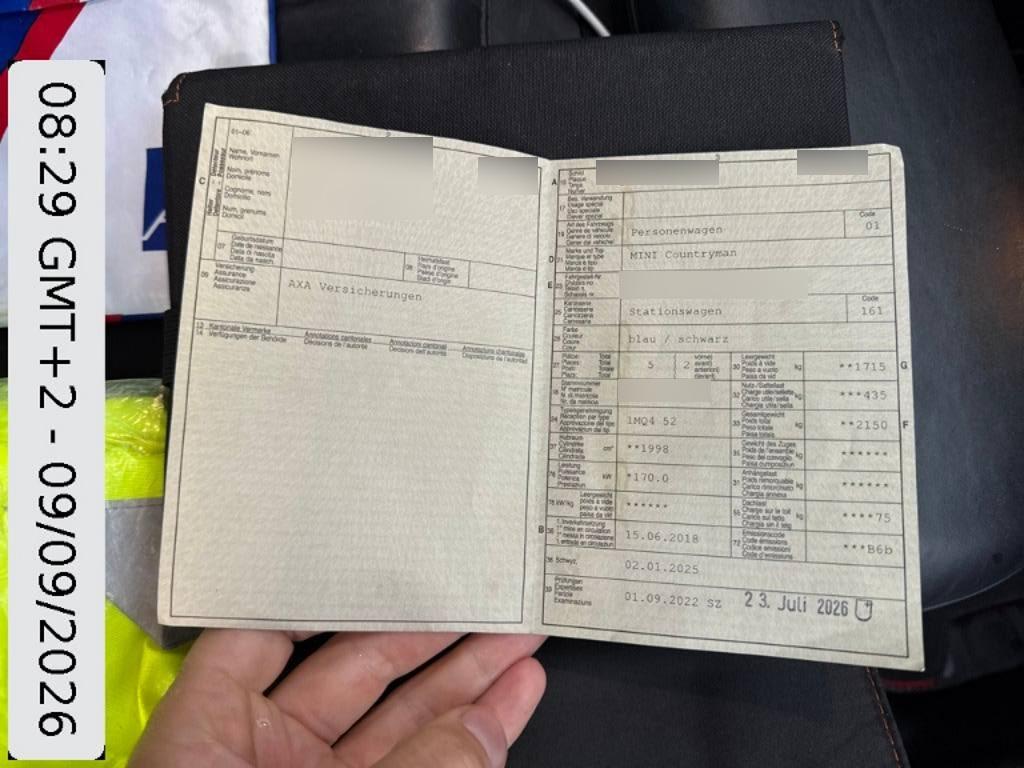 08:29 GMT+2 - 09/09/2026
01-06
C
Name, Vornamen
Wohnort
Nom, prénoms
Domicile
Cognome, nomi
Domicilio
Num, prenums
Domicil
07
Geburtsdatum
Date de naissance
Data di nascita
Data da nasch.
08
Heimatstaat
Pays d'origine
Paese d'origine
Stadi d'origin
09
Versicherung
Assurance
Assicurazione
Assicuranza
AXA Versicherungen
13
14
Kantonale Vermerke
Verfügungen der Behörde
Annotations cantonales
Décisions de l'autorité
Annotazioni cantonali
Decisioni dell'autorità
Annotaziuns chantunalas
Disposiziuns da l'autoritad
3
A
15
Schild
Plaque
Targa
Numer
17
Bes. Verwendung
Usage spécial
Uso speciale
Diever spezial
19
Art des Fahrzeugs
Genre de véhicule
Genere di veicolo
Gener dal vehichel
Personenwagen
Code
01
D
21
Marke und Typ
Marque et type
Marca e tipo
Marca e tip
MINI Countryman
E
23
Fahrgestell-Nr.
Châssis no
Telaio n.
Schassis nr.
25
Karosserie
Carrosserie
Carrozzeria
Carossaria
Stationswagen
Code
161
26
Farbe
Couleur
Colore
Colur
blau / schwarz
27
Plätze: Total
Places: Total
Posti: Totale
Plazs: Total
5
2
vorne)
avant)
anteriori)
davant)
30
Leergewicht
Poids à vide
Peso a vuoto
Paisa da vid
kg
**1715
G
18
Stammnummer
N° matricule
N. di matricola
Nr. da matricla
32
Nutz-/Sattellast
Charge utile/sellette
Carico utile/sella
Chargia utila/sella
kg
***435
24
Typengenehmigung
Réception par type
Approvazione del tipo
Approvaziun dal tip
1MQ4 52
33
Gesamtgewicht
Poids total
Peso totale
Paisa totala
kg
**2150
F
37
Hubraum
Cylindrée
Cilindrata
Cilindrada
cm³
**1998
35
Gewicht des Zuges
Poids de l'ensemble
Peso del convoglio
Paisa cumposiziun
kg
******
76
Leistung
Puissance
Potenza
Prestaziun
kW
*170.0
31
Anhängelast
Poids remorquable
Carico rimorchiato
Chargia annexa
kg
******
78
kW/kg
Leergewicht
poids à vide
peso a vuoto
paisa da vid
******
55
Dachlast
Charge sur le toit
Carico sul tetto
Chargia sin il tetg
kg
****75
B
36
1. Inverkehrsetzung
1re mise en circulation
1a messa in circolazione
1. entrada en circulaziun
15.06.2018
72
Emissionscode
Code émissions
Codice emissioni
Code d'emissiuns
***B6b
38
Schwyz,
02.01.2025
39
Prüfungen
Expertises
Perizie
Examinaziuns
01.09.2022 SZ
23. Juli 2026